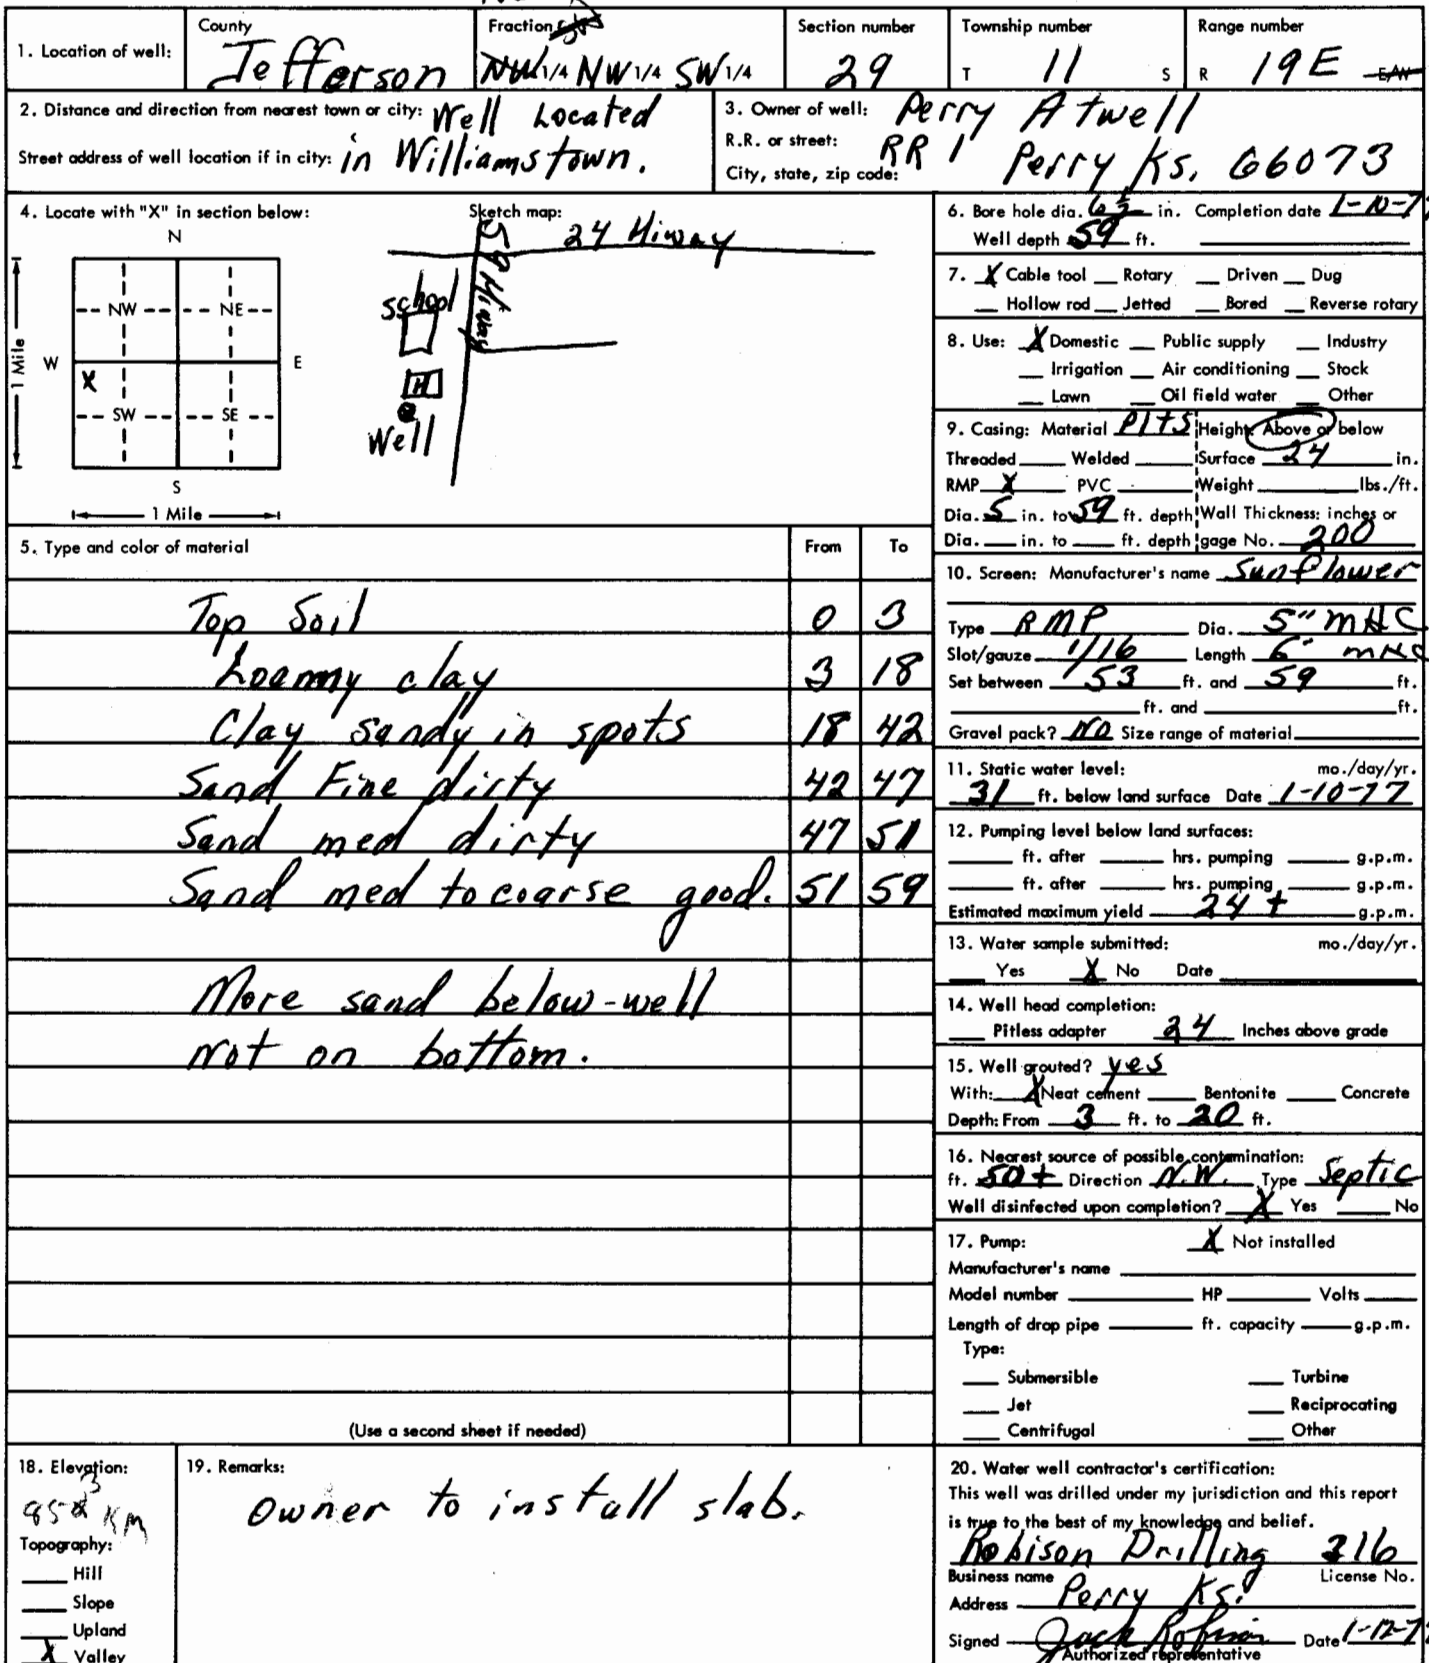 County
Fraction
Section number
Township number
Range number
1. Location of well:
Jefferson
NW 1/4 NW 1/4 SW 1/4
29
T 11 S
R 19E E/W
2. Distance and direction from nearest town or city: Well Located
Street address of well location if in city: in Williamstown.
3. Owner of well: Perry Atwell
R.R. or street: RR 1
City, state, zip code: Perry Ks. 66073
4. Locate with "X" in section below:
N
NW NE
W E
X
SW SE
S
1 Mile
1 Mile
Sketch map:
24 Hiway
59 Hiway
school
H
Well
5. Type and color of material From To
Top Soil 0 3
Loamny clay 3 18
Clay sandy in spots 18 42
Sand Fine dirty 42 47
Sand med dirty 47 51
Sand med to coarse good. 51 59
More sand below-well
not on bottom.
(Use a second sheet if needed)
6. Bore hole dia. in. Completion date 1-10-7
Well depth 59 ft.
7. X Cable tool Rotary Driven Dug
Hollow rod Jetted Bored Reverse rotary
8. Use: X Domestic Public supply Industry
Irrigation Air conditioning Stock
Lawn Oil field water Other
9. Casing: Material Height: Above or below
Threaded Welded Surface 24 in.
RMP X PVC Weight lbs./ft.
Dia. 5 in. to 59 ft. depth Wall Thickness: inches or
Dia. in. to ft. depth gage No. 200
10. Screen: Manufacturer's name Sunflower
Type RMP Dia. 5"
Slot/gauze 1/16 Length 6'
Set between 53 ft. and 59 ft.
ft. and ft.
Gravel pack? NO Size range of material
11. Static water level: mo./day/yr.
31 ft. below land surface Date 1-10-77
12. Pumping level below land surfaces:
ft. after hrs. pumping g.p.m.
ft. after hrs. pumping g.p.m.
Estimated maximum yield 24 + g.p.m.
13. Water sample submitted: mo./day/yr.
Yes X No Date
14. Well head completion:
Pitless adapter 24 Inches above grade
15. Well grouted? yes
With: X Neat cement Bentonite Concrete
Depth: From 3 ft. to 20 ft.
16. Nearest source of possible contamination:
ft. 50+ Direction N.W. Type Septic
Well disinfected upon completion? X Yes No
17. Pump: X Not installed
Manufacturer's name
Model number HP Volts
Length of drop pipe ft. capacity g.p.m.
Type:
Submersible Turbine
Jet Reciprocating
Centrifugal Other
18. Elevation:
Topography:
Hill
Slope
Upland
X Valley
19. Remarks:
Owner to install slab.
20. Water well contractor's certification:
This well was drilled under my jurisdiction and this report
is true to the best of my knowledge and belief.
Robison Drilling 216
Business name License No.
Address Perry Ks.
Signed Jack Robison Date 1-12-7
Authorized representative